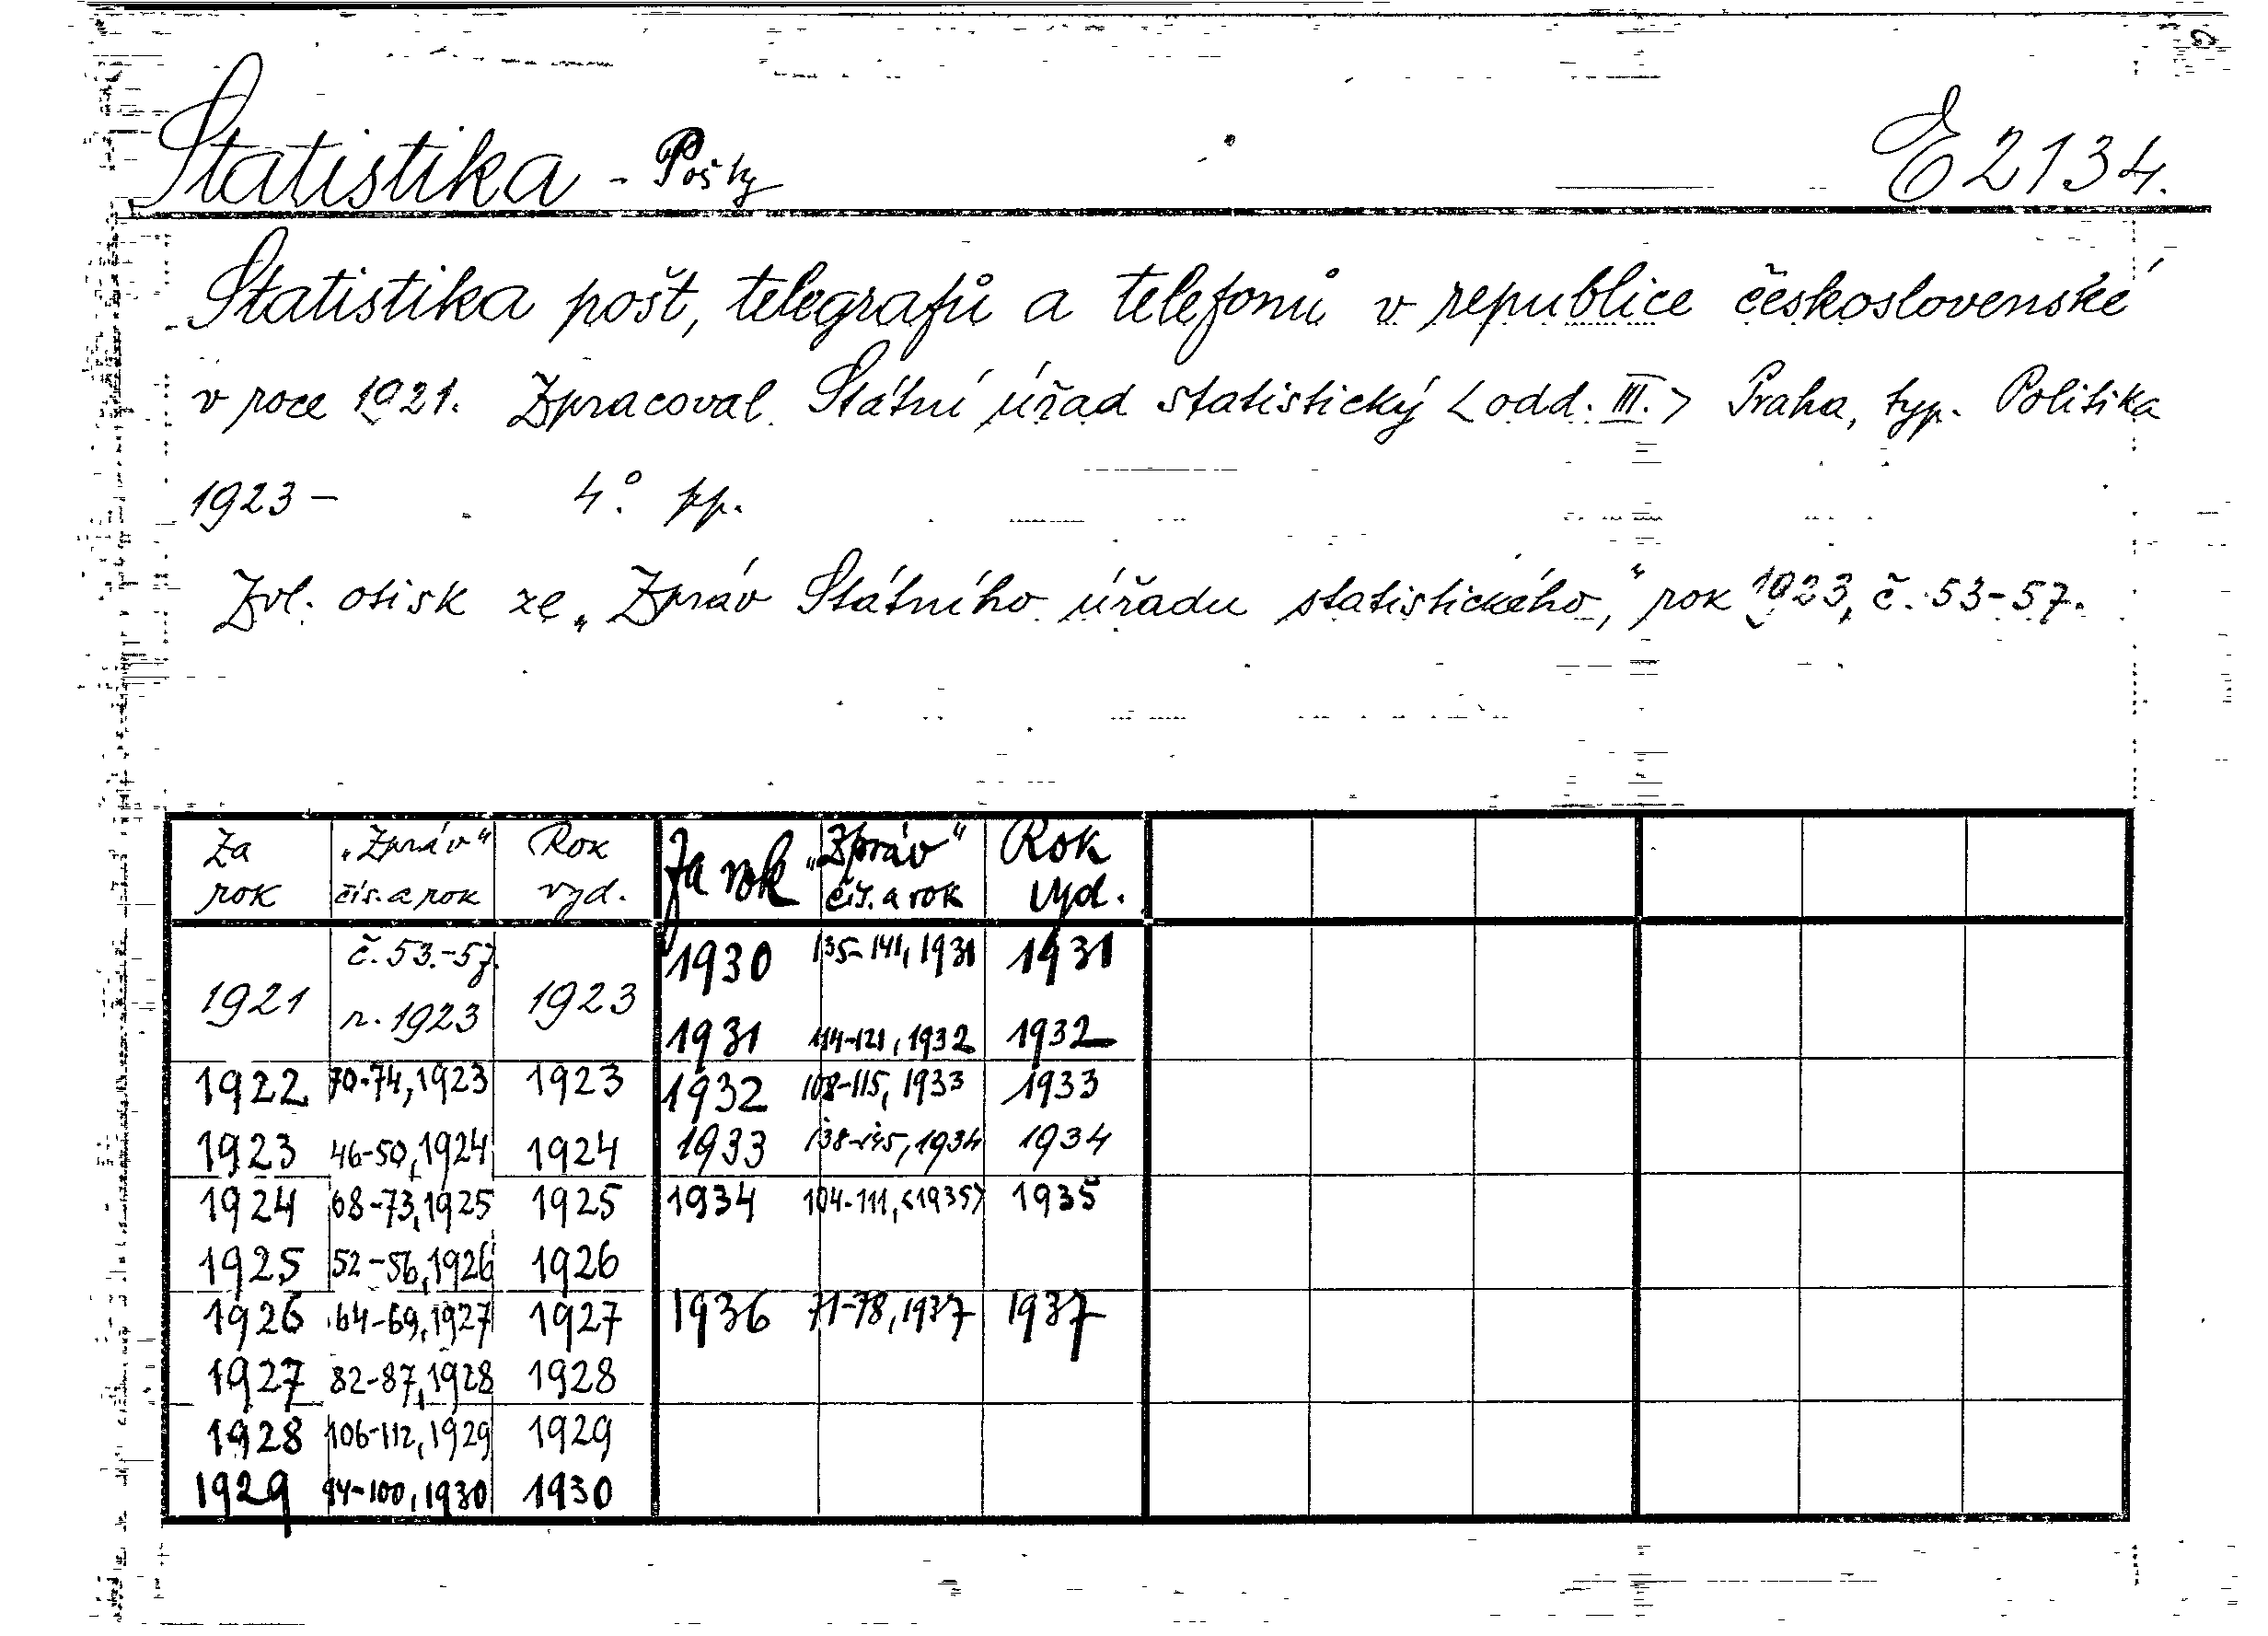 Statistika - Pošty E 2134.
Statistika pošt, telegrafů a telefonů v republice československé
v roce 1921. Zpracoval Státní úřad statistický <odd. III.> Praha, typ. Politika
1923 – 4°. pp.
Zvl. otisk ze „Zpráv Státního úřadu statistického," rok 1923, č. 53-57.
Za rok „Zpráv" čís. a rok Rok vyd. Za rok „Zpráv" čís. a rok Rok vyd.
1921 č. 53.-57. r. 1923 1923 1930 135-141, 1931 1931
1931 114-121, 1932 1932
1922 70-74, 1923 1923 1932 108-115, 1933 1933
1923 46-50, 1924 1924 1933 138-145, 1934 1934
1924 68-73, 1925 1925 1934 104-111, <1935> 1935
1925 52-56, 1926 1926
1926 64-69, 1927 1927 1936 71-78, 1937 1937
1927 82-87, 1928 1928
1928 106-112, 1929 1929
1929 94-100, 1930 1930